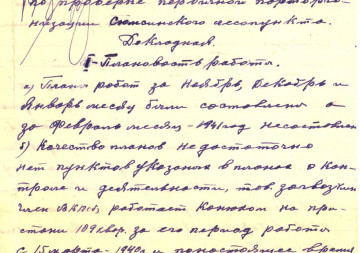 по проверке первичной парторга-
низации лесопункта.
Докладная.
I-Плановость работ.
а) План работ за Ноябрь, Декабрь и
Январь месяц были составлены а
за Февраль месяц - 1941 год несоставлен
б) Качество планов недостаточно
нет пунктов указаном в планах о кон-
троле и деятельности, тов.
член ВКП(б) работает Конюхом на при-
стани 109 квар. за его период работы
с 15 марта - 1940 г и по настоящее время